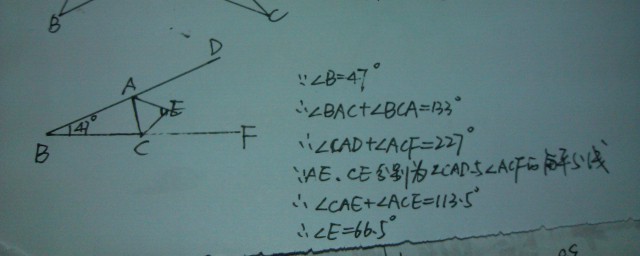 B
C
D
A
E
47°
B
C
F
∵∠B=47°
∴∠BAC+∠BCA=133°
∴∠CAD+∠ACF=227°
∵AE、CE分别为∠CAD与∠ACF的角平分线
∴∠CAE+∠ACE=113.5°
∴∠E=66.5°